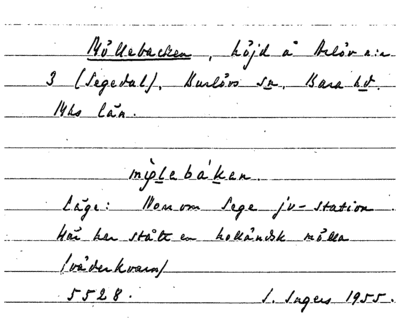 Möllebacken, höjd å Arlöv n:r
3 (Segedal), Burlövs sn, Bara hd.
Mhs län.
mìġlebáken.
Läge: Norr om Sege jv-station
Här har stått en holländsk mölla
(väderkvarn)
5528. I. Ingers 1955.